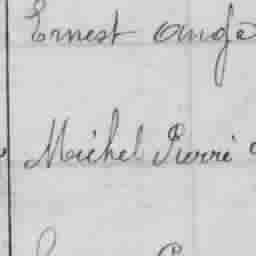 Ernest Ange
Michel Pierre